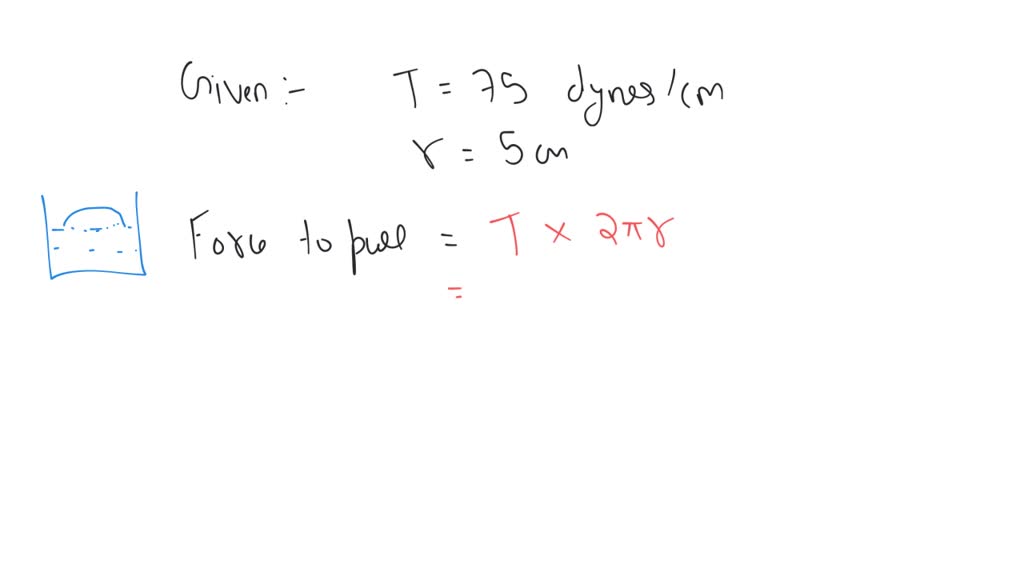 Given :- T = 75 dynes/cm
r = 5 cm
Force to pull = T × 2πr
=